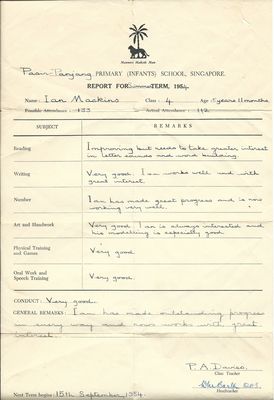 Pasir Panjang PRIMARY (INFANTS) SCHOOL, SINGAPORE.
REPORT FOR Summer TERM, 1954.
Name: Ian Mackins Class 4 Age: 5 years 11 months.
Possible Attendance: 133 Actual Attendance: 112
SUBJECT REMARKS
Reading Improving but needs to take greater interest
in letter sounds and word building.
Writing Very good. Ian works well and with
great interest.
Number Ian has made great progress and is now
working very well.
Art and Handwork Very good. Ian is always interested and
his modelling is especially good.
Physical Training
and Games Very good
Oral Work and
Speech Training Very good.
CONDUCT: Very good.
GENERAL REMARKS: Ian has made outstanding progress
in every way and now works with great
interest.
P. A. Davies.
Class Teacher
Headteacher
Next Term begins: 15th September, 1954.